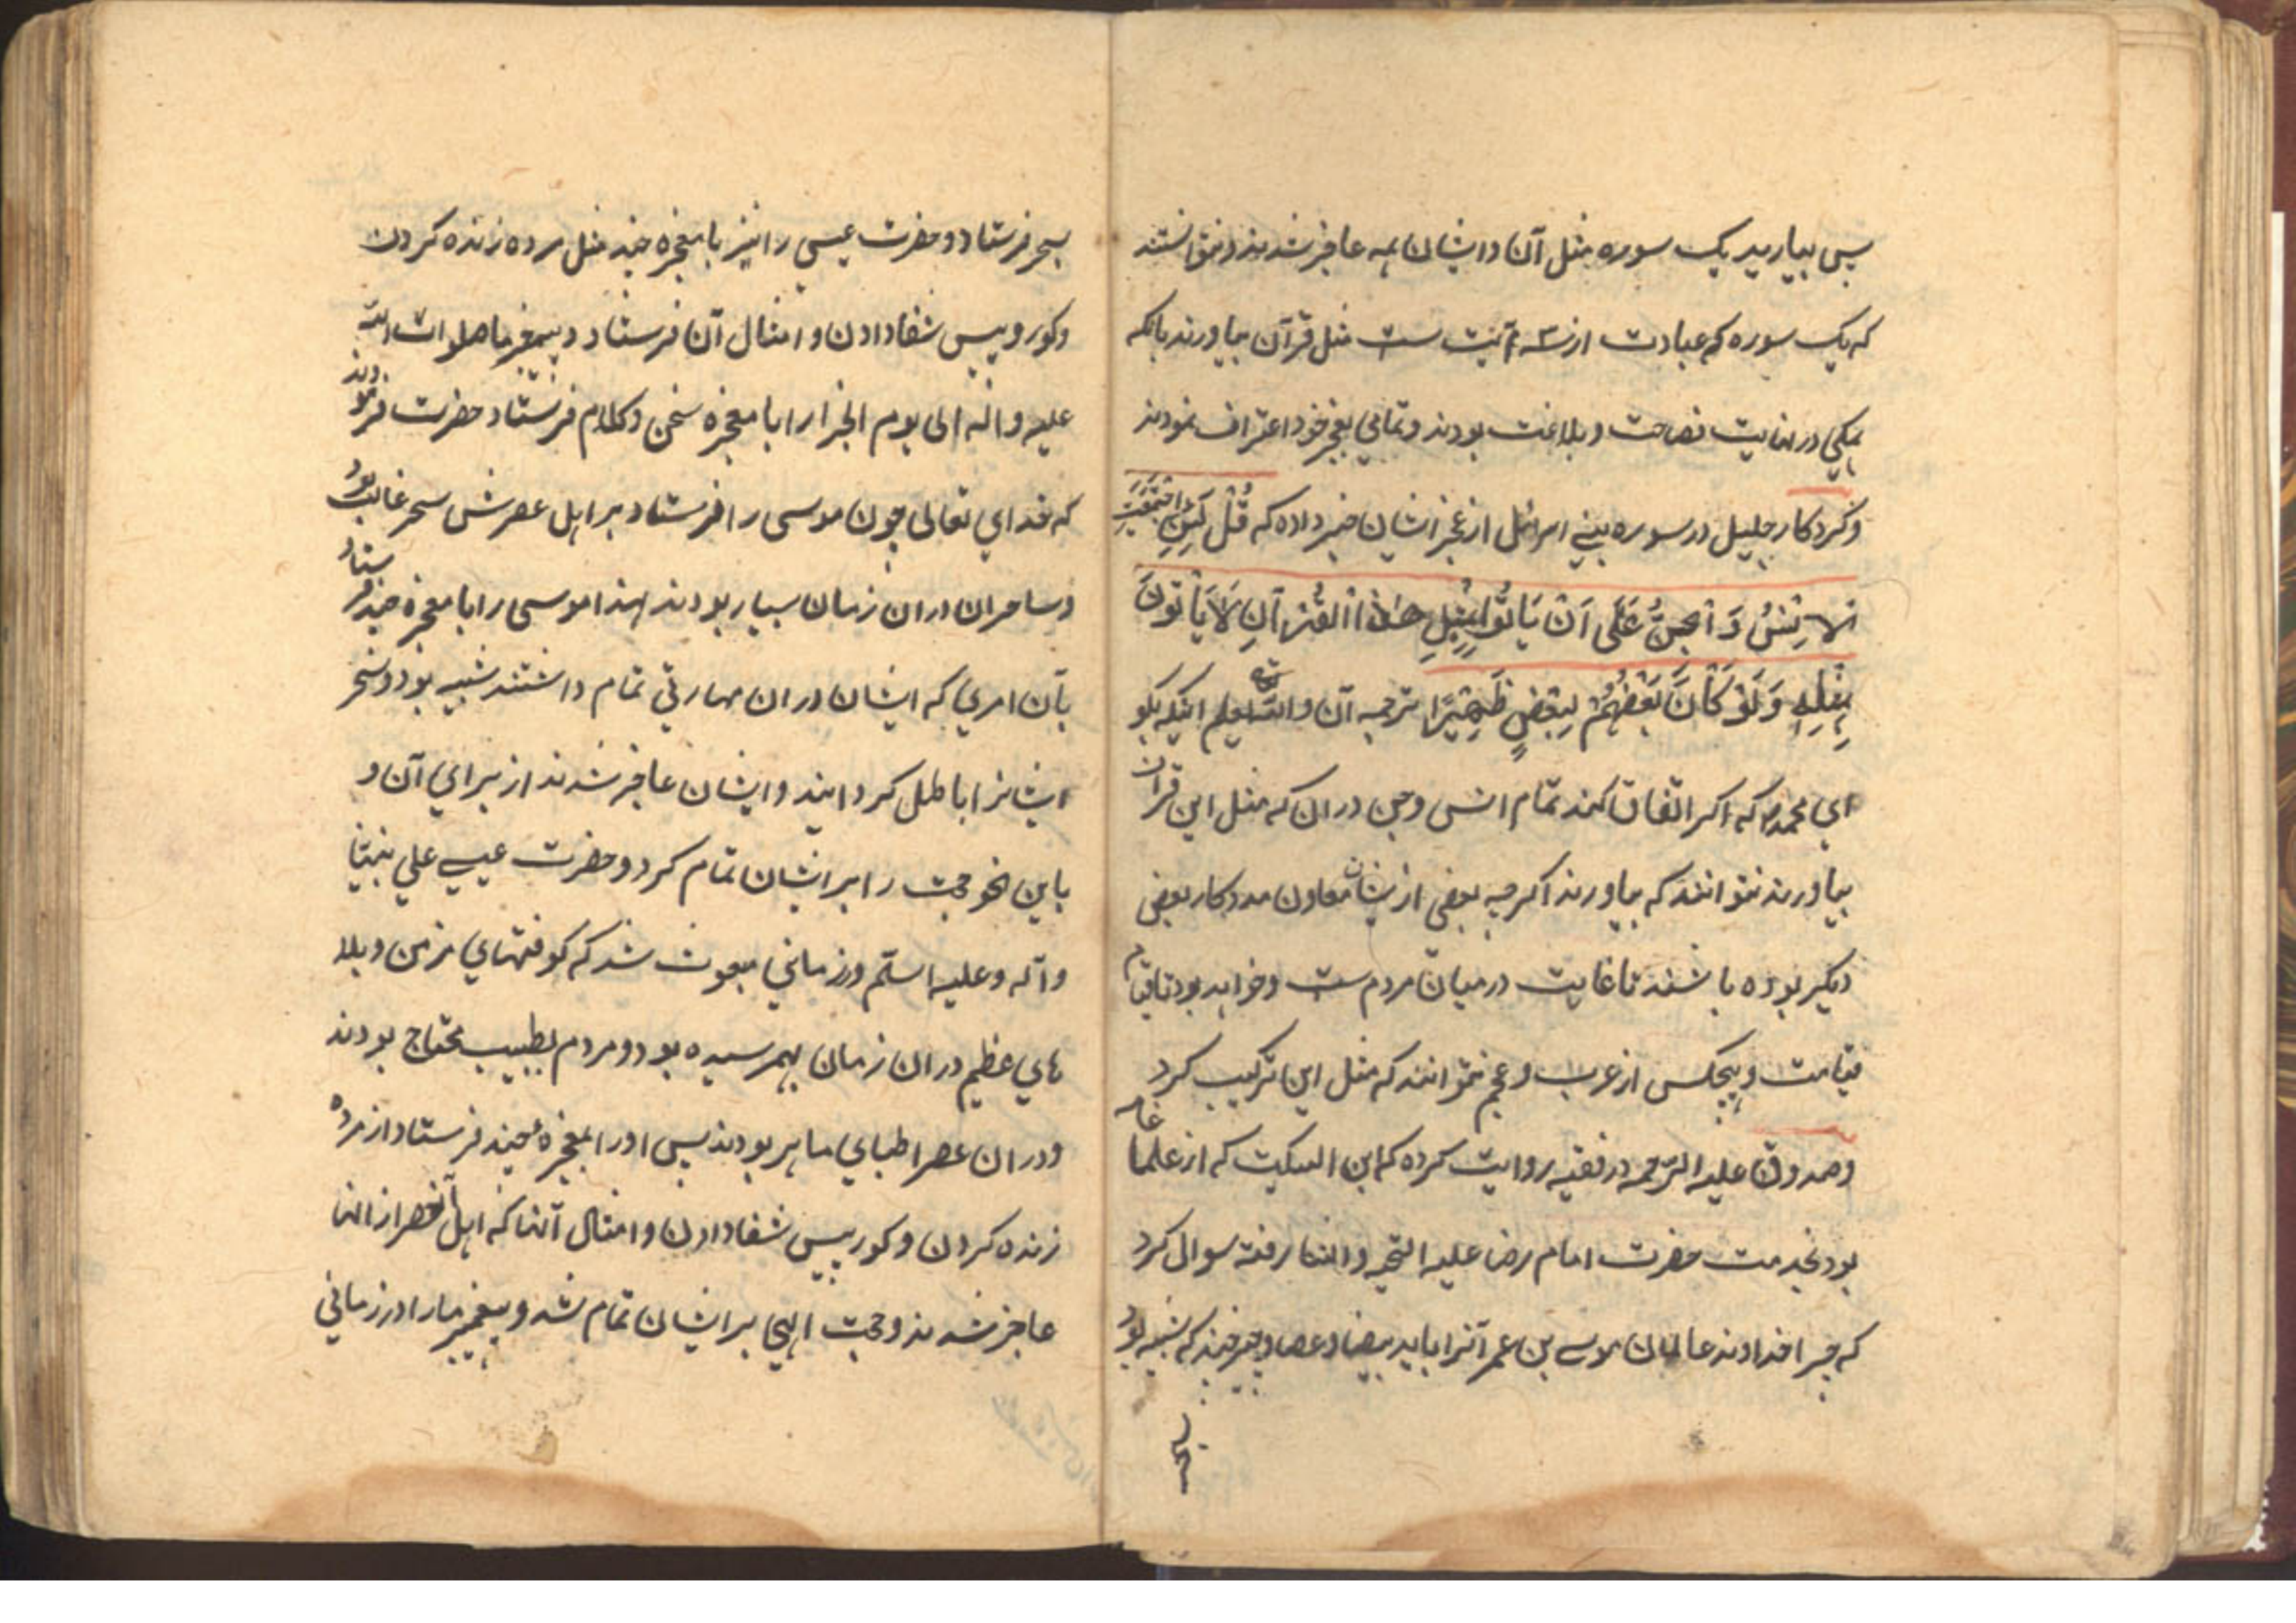 پس بیارید یک سوره مثل آن و ایشان همه عاجز شدند و نتوانستند
که یک سوره که عبارت از سه آیت ست مثل قرآن بیاورند با آنکه
همکی در نهایت فصاحت و بلاغت بودند و تمامی بعجز خود اعتراف نمودند
و کردکار جلیل در سوره بنی اسرائل از عجز ایشان خبر داده که قُلْ لَئِنِ اجْتَمَعَتِ
الاِنْسُ وَ الْجِنُّ عَلَی اَنْ یَاْتُوْا بِمِثْلِ هٰذَا الْقُرْآنِ لَا یَاْتُوْنَ
بِمِثْلِهِ وَ لَوْ کَانَ بَعْضُهُمْ لِبَعْضٍ ظَهِیْرًا ترجمه آن و الله یعلم اینکه بکو
ای محمد که اکر اتفاق کنند تمام انس و جن در ان که مثل این قرآن
بیاورند نتوانند که بیاورند اکرچه بعضی از یشان معاون مددکار بعضی
دیکر بوده باشند تا غایت در میان مردم ست و خواهد بود تا قیام
قیامت و هیچکس از عرب و عجم نتوانند که مثل این ترکیب کرد
و صدوق علیه الرحمه در فقیه روایت کرده که ابن السکیت که از علما عامه
بود بخدمت حضرت امام رضا علیه التحیه و الثنا رفته سوال کرد
که چرا خداوند عالمیان موسی بن عمرانرا با ید بیضا و عصا و چیزی چند که شبیه بود
بسحر
بسحر فرستاد و حضرت عیسی را نیز با معجزه چند مثل مرده زنده کردن
و کور و پیس شفا دادن و امثال آن فرستاد و پیغمبر ما صلوات الله
علیه و آله الی یوم الجزا را با معجزه سخن و کلام فرستاد حضرت فرمودند
که خدای تعالی چون موسی را فرستاد بر اهل عصرش سحر غالب بود
و ساحران دران زمان بسیار بودند لهذا موسی را با معجزه چند فرستاد
بآن امری که ایشان دران مهارتی تمام داشتند شبیه بود و سحر
ایشانرا باطل کردانید و ایشان عاجز شدند از برای آن و
باین نحو حجت را بر ایشان تمام کرد و حضرت عیسی علی نبینا
و آله و علیه السلم در زمانی مبعوث شد که کوفتهای مزمن و بلا
های عظیم دران زمان بهمرسیده بود و مردم بطبیب محتاج بودند
و دران عصر اطبای ماهر بودند پس او را بمعجزهٔ چند فرستاد از مرده
زنده کردن و کور پیس شفا دادن و امثال آنها که اهل آنعصر از انها
عاجز شدند و حجت الهی بر ایشان تمام شد و پیغمبر ما را در زمانی